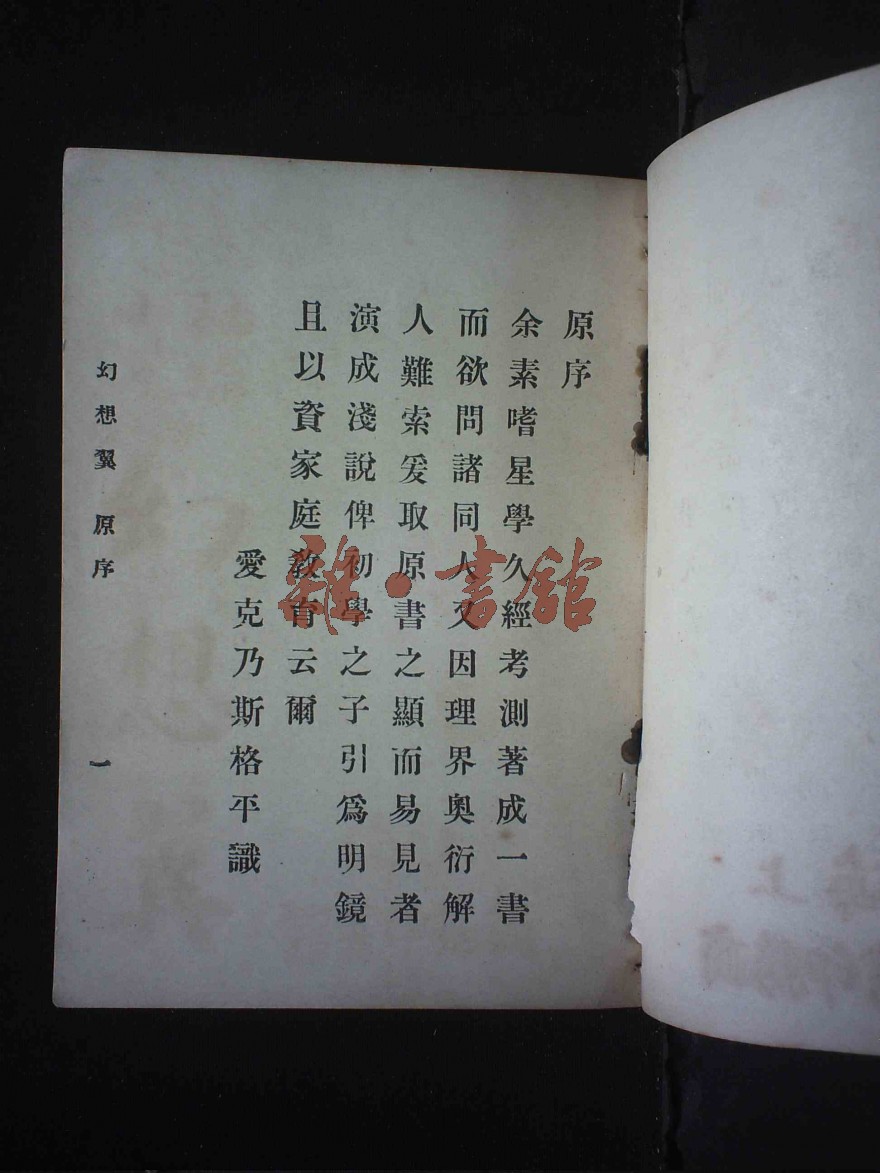 原序
余素嗜星學久經考測著成一書
而欲問諸同人又因理界奧衍解
人難索爰取原書之顯而易見者
演成淺說俾初學之子引爲明鏡
且以資家庭敎育云爾
愛克乃斯格平識
幻想翼 原序
一
雜·書館